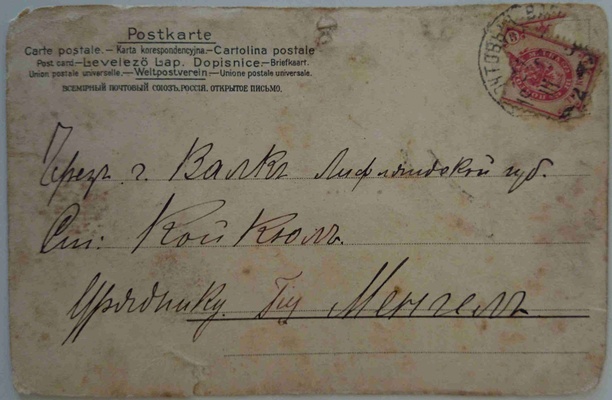 Postkarte
Carte postale. – Karta korespondencyjna. – Cartolina postale
Post card. – Levelező Lap. Dopisnice. – Briefkaart.
Union postale universelle. – Weltpostverein – Unione postale universale.
ВСЕМІРНЫЙ ПОЧТОВЫЙ СОЮЗЪ. РОССІЯ. ОТКРЫТОЕ ПИСЬМО.
Чрезъ г. Валкъ Лифляндской губ.
Ст: Койкюль.
Уряднику. Гну Менгель